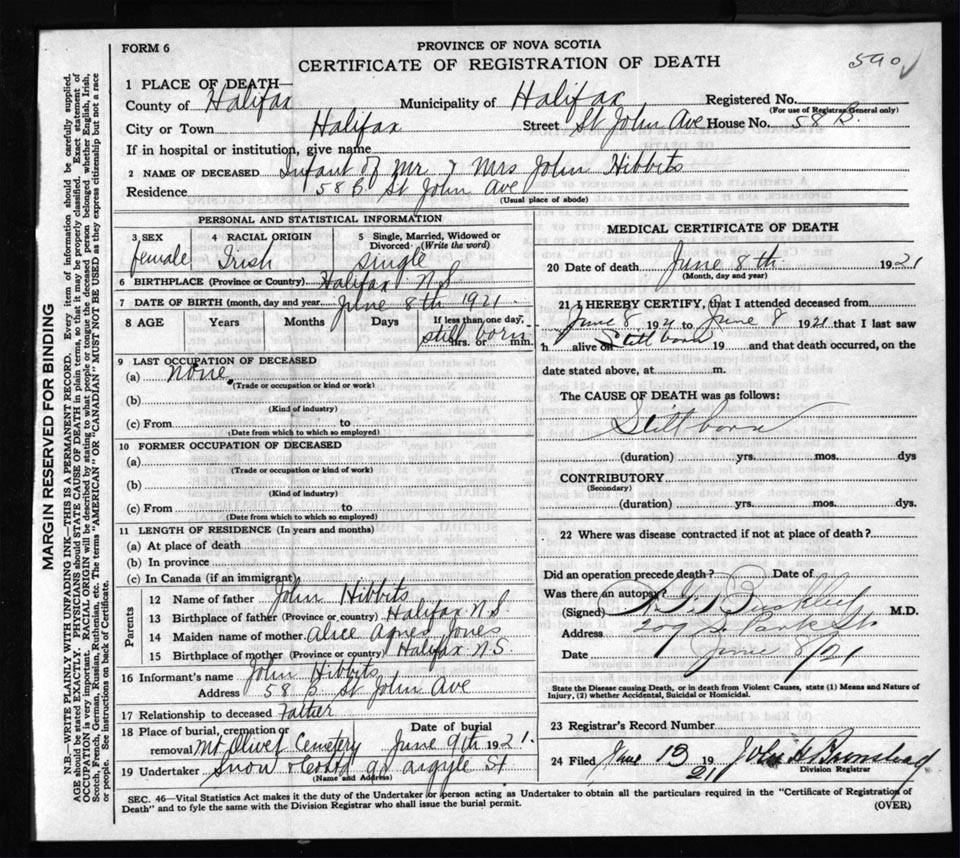 PROVINCE OF NOVA SCOTIA
FORM 6
CERTIFICATE OF REGISTRATION OF DEATH
590
1 PLACE OF DEATH
County of Halifax Municipality of Halifax Registered No.
(For use of Registrar General only)
City or Town Halifax Street St John Ave House No. 58 B.
If in hospital or institution, give name
2 NAME OF DECEASED Infant of Mr. & Mrs John Hibbits
Residence 58 B St John Ave
(Usual place of abode)
PERSONAL AND STATISTICAL INFORMATION
3 SEX 4 RACIAL ORIGIN 5 Single, Married, Widowed or
Divorced (Write the word)
female Irish single
6 BIRTHPLACE (Province or Country) Halifax N.S
7 DATE OF BIRTH (month, day and year) June 8th 1921.
8 AGE Years Months Days If less than one day,
still born
hrs. or min.
9 LAST OCCUPATION OF DECEASED
(a) none.
(Trade or occupation or kind or work)
(b)
(Kind of industry)
(c) From to
(Date from which to which so employed)
10 FORMER OCCUPATION OF DECEASED
(a)
(Trade or occupation or kind of work)
(b)
(Kind of industry)
(c) From to
(Date from which to which so employed)
11 LENGTH OF RESIDENCE (In years and months)
(a) At place of death
(b) In province
(c) In Canada (if an immigrant)
Parents
12 Name of father John Hibbits
13 Birthplace of father (Province or country) Halifax N.S.
14 Maiden name of mother. Alice Agnes Jones
15 Birthplace of mother (Province or country) Halifax N.S.
16 Informant's name John Hibbits
Address 58 B St John Ave
17 Relationship to deceased Father
18 Place of burial, cremation or Date of burial
removal Mt Olivet Cemetery June 9th 1921.
19 Undertaker Snow & Co Ltd 90 Argyle St
(Name and Address)
MEDICAL CERTIFICATE OF DEATH
20 Date of death June 8th 1921
(Month, day and year)
21 I HEREBY CERTIFY, that I attended deceased from
June 8 1921 to June 8 1921 that I last saw
h alive on Still born 19 and that death occurred, on the
date stated above, at m.
The CAUSE OF DEATH was as follows:
Still born
(duration) yrs. mos. dys
CONTRIBUTORY
(Secondary)
(duration) yrs. mos. dys.
22 Where was disease contracted if not at place of death?
Did an operation precede death? Date of
Was there an autopsy?
(Signed) M.D.
Address 209 S. Park St.
Date June 8/21
State the Disease causing Death, or in death from Violent Causes, state (1) Means and Nature of
Injury, (2) whether Accidental, Suicidal or Homicidal.
23 Registrar's Record Number
24 Filed June 13 1921 John H
Division Registrar
SEC. 46—Vital Statistics Act makes it the duty of the Undertaker or person acting as Undertaker to obtain all the particulars required in the "Certificate of Registration of
Death" and to fyle the same with the Division Registrar who shall issue the burial permit.
(OVER)
MARGIN RESERVED FOR BINDING
N.B.—WRITE PLAINLY WITH UNFADING INK—THIS IS A PERMANENT RECORD. Every item of information should be carefully supplied.
AGE should be stated EXACTLY. PHYSICIANS should STATE CAUSE OF DEATH in plain terms, so that it may be properly classified. Exact statement of
OCCUPATION is very important. RACIAL ORIGIN will be described by stating to what people or tongue the deceased person belonged whether English, Irish,
Scotch, French, German, Russian, Ruthenian, etc. The terms "AMERICAN" or "CANADIAN" MUST NOT BE USED as they express citizenship but not a race
or people. See instructions on back of Certificate.